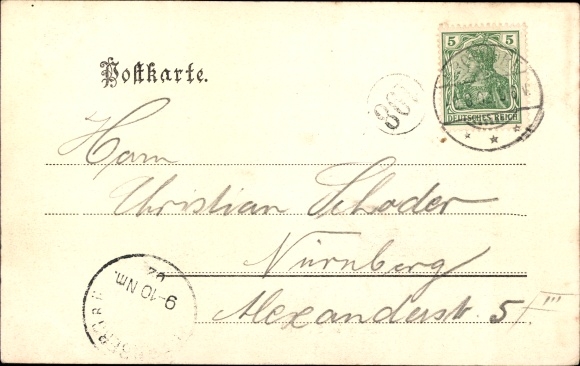 5 5
DEUTSCHES REICH
Postkarte.
Herrn
Christian Schoder
Nürnberg
Alexanderstr. 5/III
9-10 Nm.